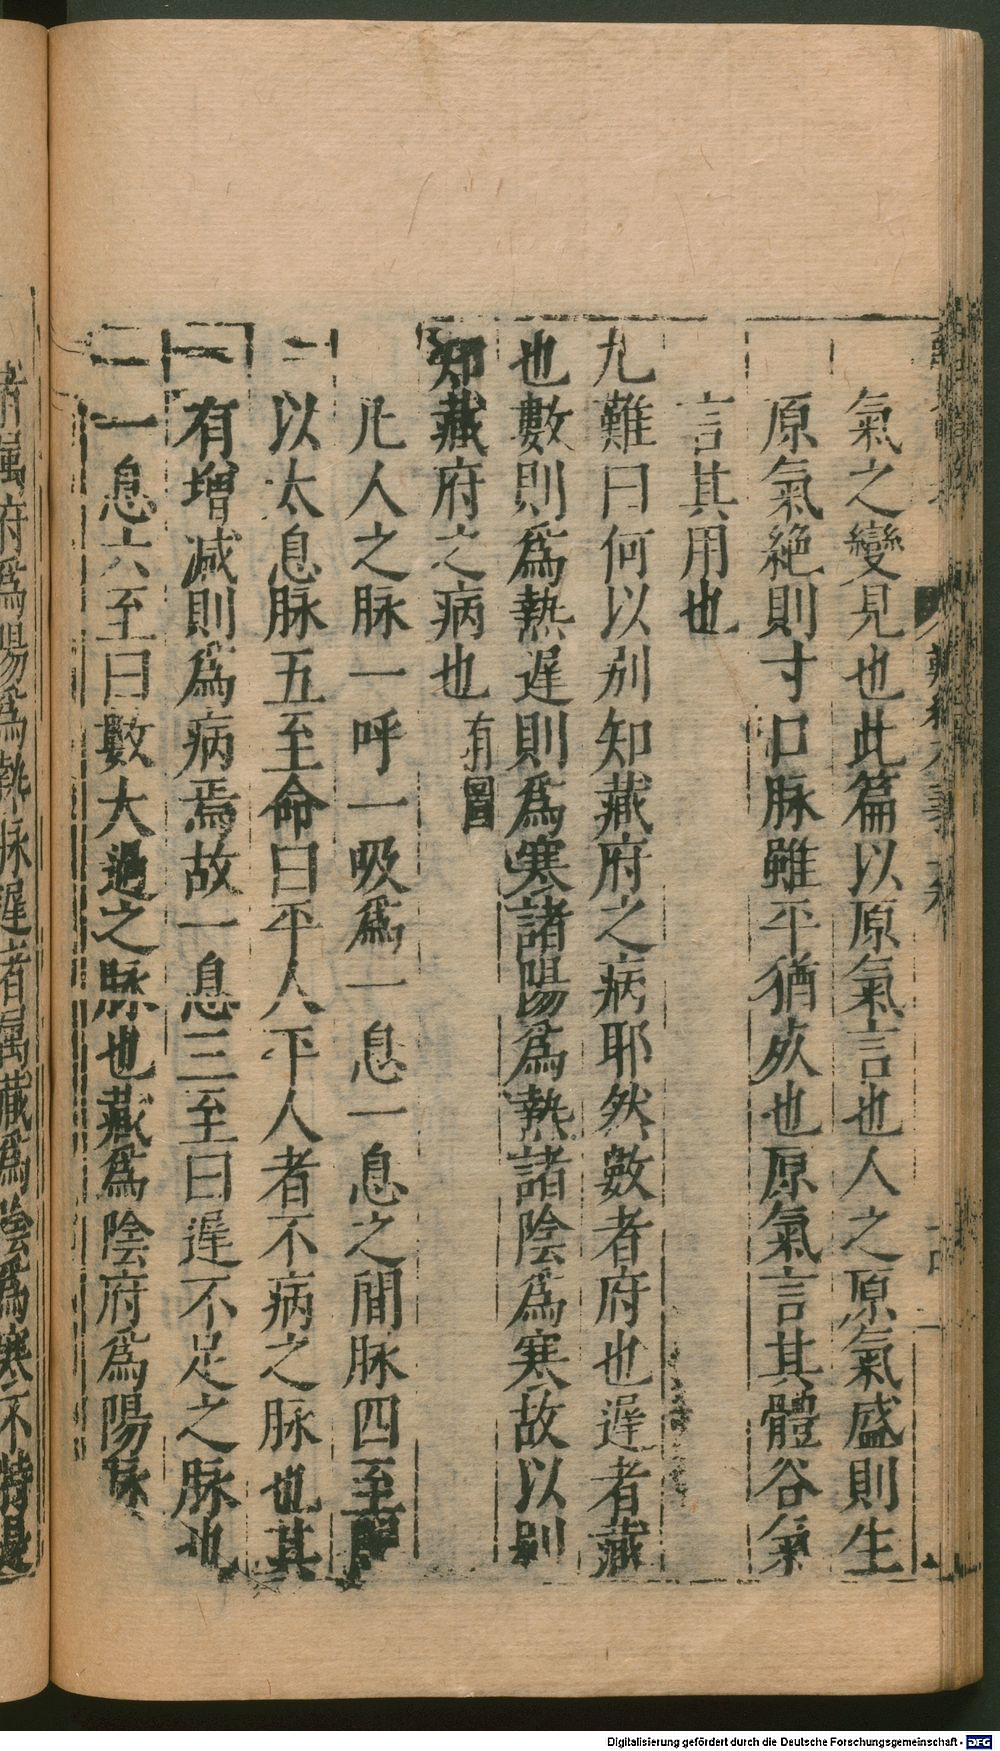 氣之變見也此篇以原氣言也人之原氣盛則生
原氣絶則寸口脉雖平猶死也原氣言其體谷氣
言其用也
九難曰何以别知藏府之病耶然數者府也遲者藏
也數則爲熱遲則爲寒諸陽爲熱諸陰爲寒故以别
知藏府之病也 有圖
凡人之脉一呼一吸爲一息一息之間脉四至閏
以太息脉五至命曰平人平人者不病之脉也其
有增减則爲病焉故一息三至曰遲不足之脉也
一息六至曰數大過之脉也藏爲陰府爲陽脉
屬府爲陽爲熱脉遲者屬藏爲陰爲寒不特
Digitalisierung gefördert durch die Deutsche Forschungsgemeinschaft - DFG